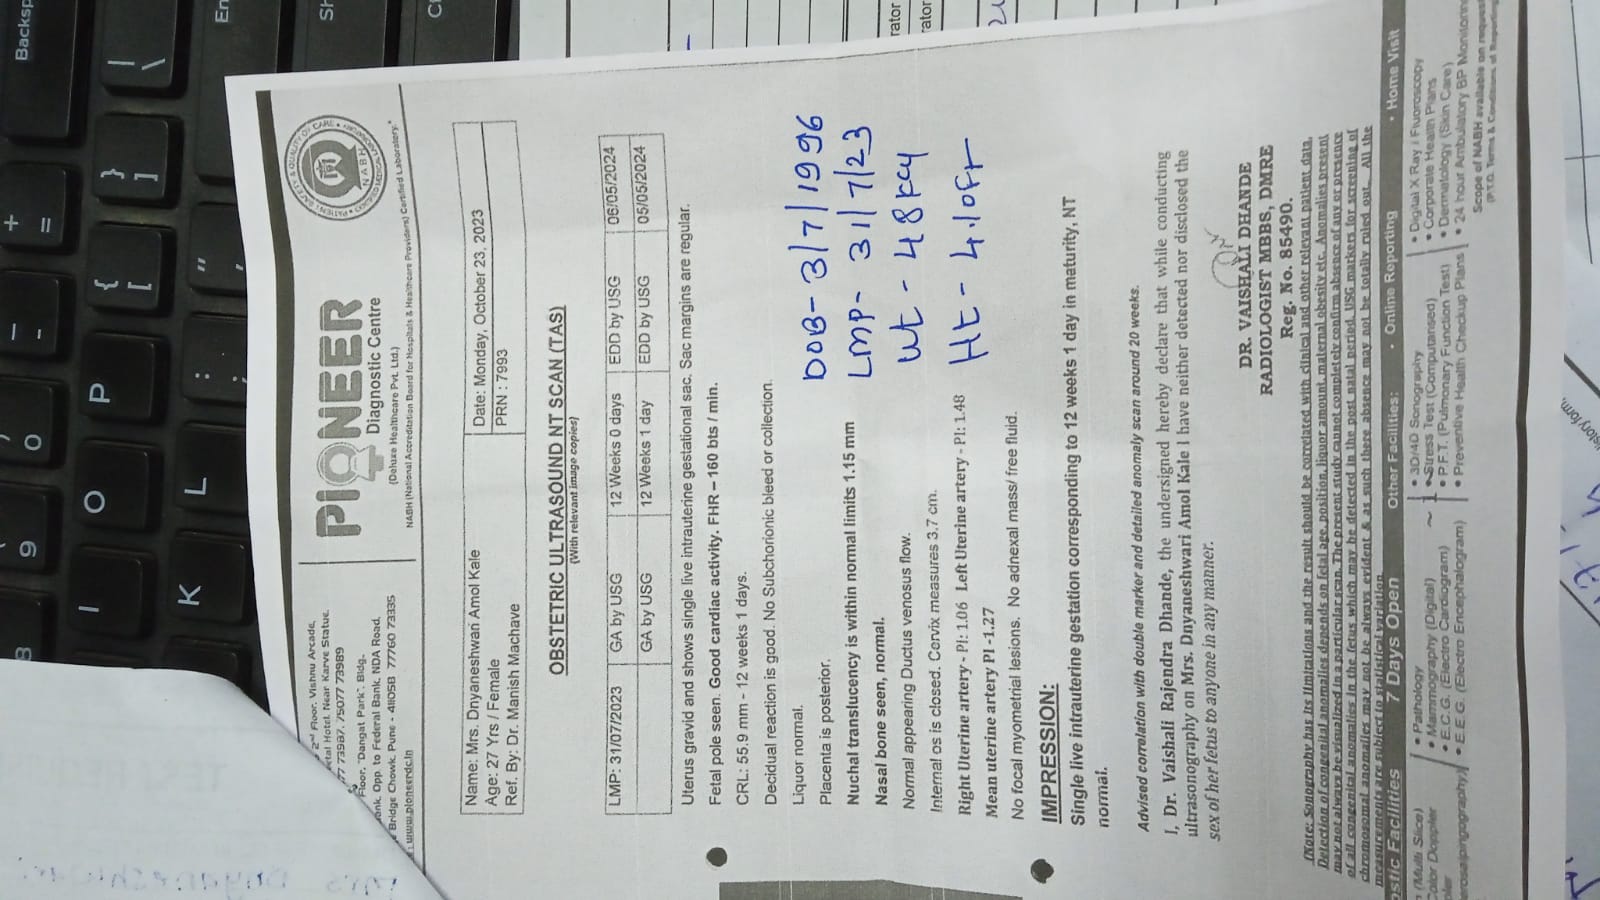 2nd Floor, Vishnu Arcade,
Hotel, Near Karve Statue.
77 73987, 75077 73989
Floor, "Dangat Park", Bldg.
Opp. to Federal Bank, NDA Road,
Bridge Chowk, Pune - 411058 77760 73335
www.pioneerdc.in
PIONEER
Diagnostic Centre
(Deluxe Healthcare Pvt. Ltd.)
NABH (National Accreditation Board for Hospitals & Healthcare Providers) Certified Laboratory."
PATIENT SAFETY & QUALITY OF CARE
NABH
Name: Mrs. Dnyaneshwari Amol Kale
Date: Monday, October 23, 2023
Age: 27 Yrs / Female
PRN : 7993
Ref. By: Dr. Manish Machave
OBSTETRIC ULTRASOUND NT SCAN (TAS)
(With relevant image copies)
LMP: 31/07/2023 GA by USG 12 Weeks 0 days EDD by USG 06/05/2024
GA by USG 12 Weeks 1 day EDD by USG 05/05/2024
Uterus gravid and shows single live intrauterine gestational sac. Sac margins are regular.
Fetal pole seen. Good cardiac activity. FHR – 160 bts / min.
CRL: 55.9 mm - 12 weeks 1 days.
Decidual reaction is good. No Subchorionic bleed or collection.
Liquor normal.
Placenta is posterior.
Nuchal translucency is within normal limits 1.15 mm
Nasal bone seen, normal.
Normal appearing Ductus venosus flow.
Internal os is closed. Cervix measures 3.7 cm.
Right Uterine artery - PI: 1.06 Left Uterine artery - PI: 1.48
Mean uterine artery PI -1.27
No focal myometrial lesions. No adnexal mass/ free fluid.
DOB- 3/7/1996
LMP- 31/7/23
Wt - 48kg
Ht - 4.10Ft
IMPRESSION:
Single live intrauterine gestation corresponding to 12 weeks 1 day in maturity, NT
normal.
Advised correlation with double marker and detailed anomaly scan around 20 weeks.
I, Dr. Vaishali Rajendra Dhande, the undersigned hereby declare that while conducting
ultrasonography on Mrs. Dnyaneshwari Amol Kale I have neither detected nor disclosed the
sex of her fetus to anyone in any manner.
DR. VAISHALI DHANDE
RADIOLOGIST MBBS, DMRE
Reg. No. 85490.
(Note: Sonography has its limitations and the result should be correlated with clinical and other relevant patient data.
Detection of congenital anomalies depends on fetal age, position, liquor amount, maternal obesity etc. Anomalies present
may not always be visualized in a particular scan. The present study cannot completely confirm absence of any or presence
of all congenital anomalies in the fetus which may be detected in the post natal period. USG markers for screening of
chromosomal anomalies may not be always evident & as such there absence may not be totally ruled out. All the
measurements are subject to statistical variation
ostic Facilities 7 Days Open Other Facilities: • Online Reporting • Home Visit
(Multi Slice)
Color Doppler
• Pathology
• Mammography (Digital)
• E.C.G. (Electro Cardiogram)
• E.E.G. (Electro Encephalogram)
• 3D/4D Sonography
• Stress Test (Computerised)
• P.F.T. (Pulmonary Function Test)
• Preventive Health Checkup Plans
• Digital X Ray / Fluoroscopy
• Corporate Health Plans
• Dermatology (Skin Care)
• 24 hour Ambulatory BP Monitoring
Scope of NABH available on request
(P.T.O. Terms & Conditions of Reporting)
Backsp
+
=
_
-
O
9
P
O
I
L
K
{
[
}
]
|
\
:
;
"
'
En
Sh
rator
rator